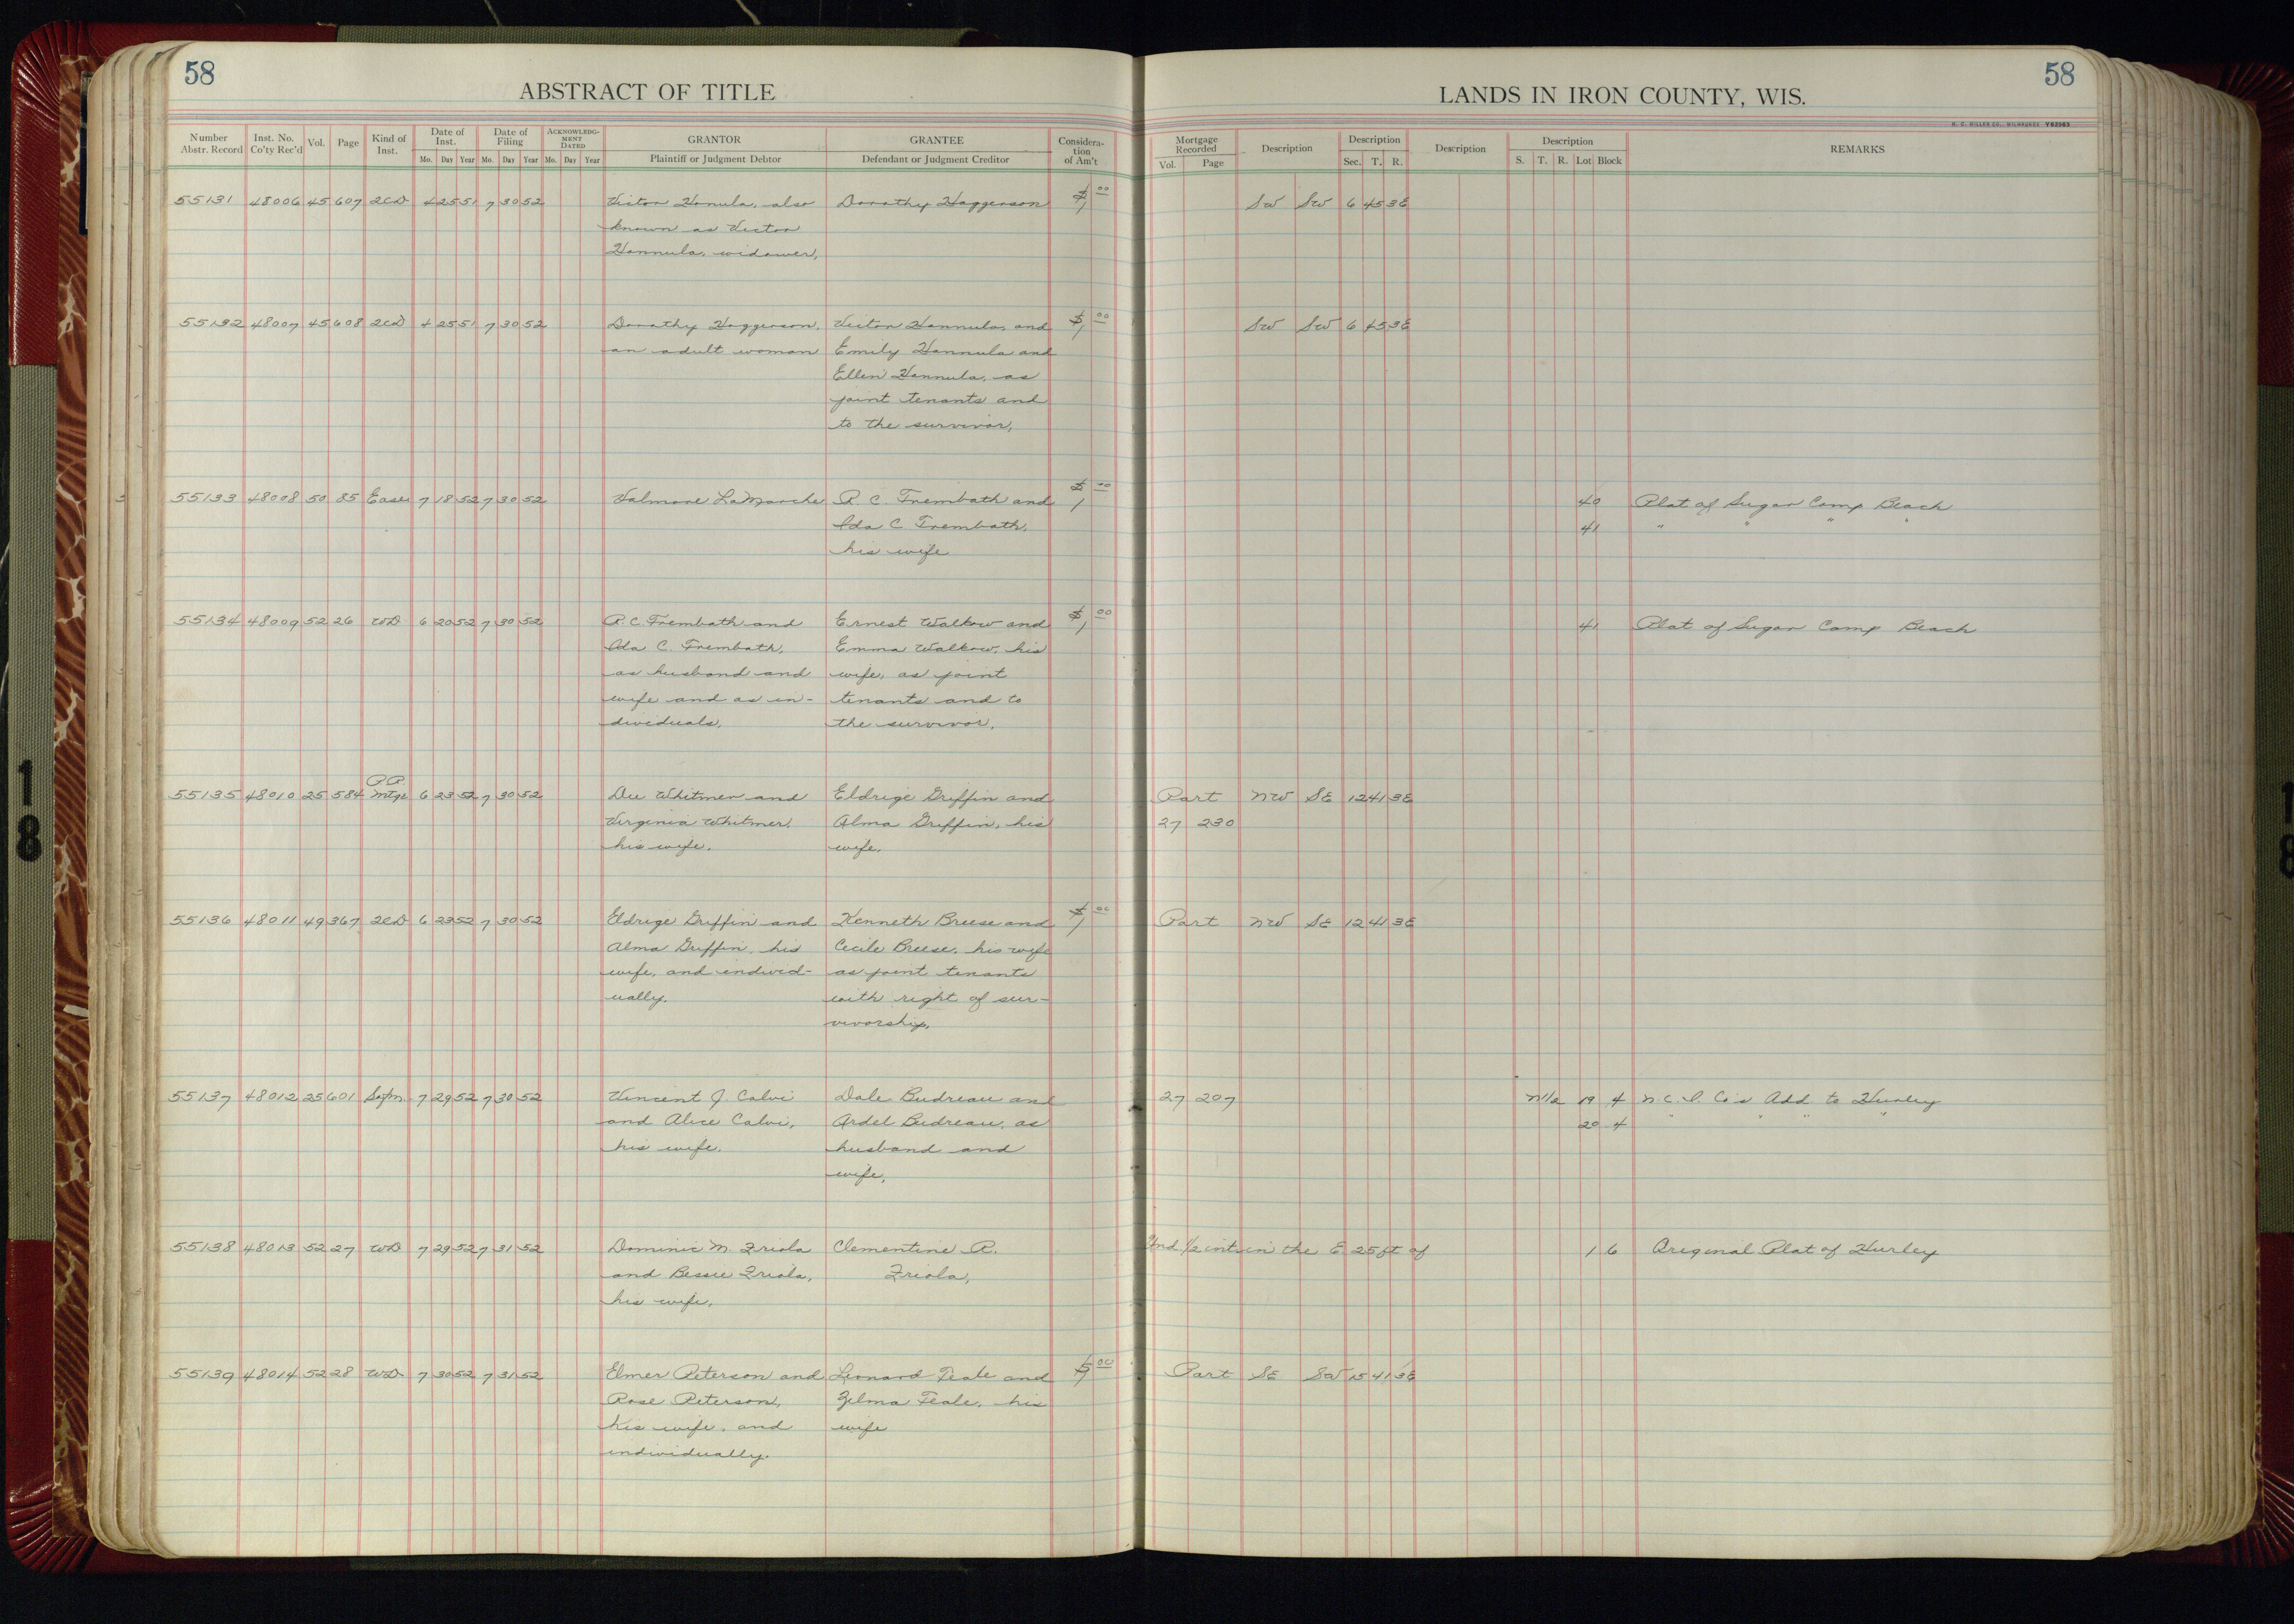 58
ABSTRACT OF TITLE
LANDS IN IRON COUNTY, WIS.
58
H. C. MILLER CO., MILWAUKEE
Number Abstr. Record Inst. No. Co'ty Rec'd Vol. Page Kind of Inst. Date of Inst. Mo. Day Year Date of Filing Mo. Day Year ACKNOWLEDGMENT DATED Mo. Day Year GRANTOR Plaintiff or Judgment Debtor GRANTEE Defendant or Judgment Creditor Consideration of Am't Mortgage Recorded Vol. Page Description Description Sec. T. R. Description Description S. T. R. Lot Block REMARKS
55131 48006 45 607 2CD 4 25 51 7 30 52 Victor Hanula, also Dorothy Haggerson $1 00 SW SW 6 45 3E
known as Victor
Hannula, widower,
55132 48007 45 608 2CD 4 25 51 7 30 52 Dorothy Haggerson, Victor Hannula, and $1 00 SW SW 6 45 3E
an adult woman Emily Hannula and
Ellen Hannula, as
joint tenants and
to the survivor,
55133 48008 50 85 Ease 7 18 52 7 30 52 Valmore LaMarche R. C. Trembath and $1 00 40 Plat of Sugar Camp Beach
Ida C. Trembath, 41 " " " "
his wife
55134 48009 52 26 WD 6 20 52 7 30 52 R. C. Trembath and Ernest Walkow and $1 00 41 Plat of Sugar Camp Beach
Ida C. Trembath, Emma Walkow, his
as husband and wife, as joint
wife and as in- tenants and to
dividuals, the survivor.
55135 48010 25 584 PR Mtge 6 23 52 7 30 52 Dee Whitmer and Eldrige Griffin and Part NW SE 12 41 3E
Virginia Whitmer, Alma Griffin, his 27 230
his wife. wife.
55136 48011 49 367 2CD 6 23 52 7 30 52 Eldrige Griffin and Kenneth Breese and $1 00 Part NW SE 12 41 3E
Alma Griffin, his Cecile Breese, his wife
wife, and individ- as joint tenants
ually. with right of sur-
vivorship.
55137 48012 25 601 Satfn 7 29 52 7 30 52 Vincent J. Calvi Dale Budreau and 27 207 N1/2 19 4 N. C. I. Co's Add to Hurley
and Alice Calvi, Ardel Budreau, as 20 4 " " " "
his wife. husband and
wife,
55138 48013 52 27 WD 7 29 52 7 31 52 Dominic M. Zriola Clementine R. Und 1/2 int in the E 25 ft of 1 6 Original Plat of Hurley
and Bessie Zriola, Zriola,
his wife,
55139 48014 52 28 WD 7 30 52 7 31 52 Elmer Peterson and Leonard Teale and $1 00 Part SE SW 15 41 3E
Rose Peterson, Zelma Teale, his
his wife, and wife
individually.
18